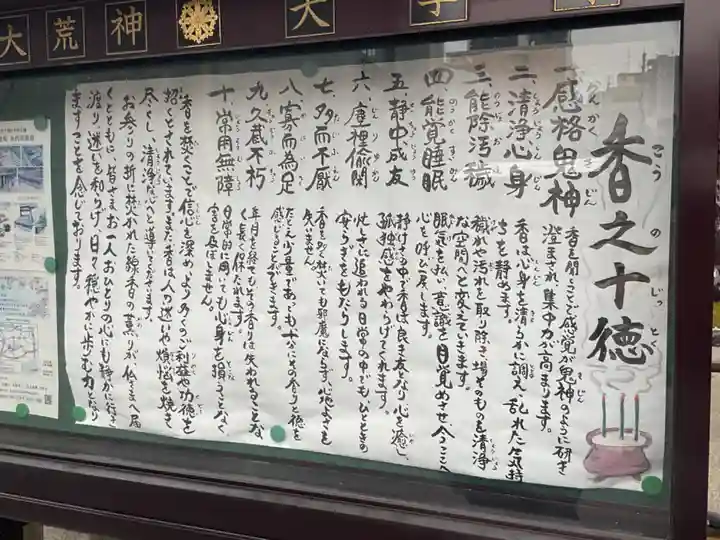 大荒神
香之十徳
こうのじっとく
一、感格鬼神
香を聞くことで感覚が鬼神のように研ぎ
澄まされ、集中力が高まります。
二、清浄心身
香は心身を清らかに調え、乱れた気持
ちを静めます。
三、能除汚穢
穢れや汚れを取り除き、場そのものを清浄
な空間へと変えていきます。
四、能覚睡眠
眠気を払い、意識を目覚めさせ、今ここへ
心を呼び戻します。
五、静中成友
静けさの中で香は良き友となり、心を癒し、
孤独感をやわらげてくれます。
六、塵裡偸閑
忙しさに追われる日常の中でも、ひとときの
安らぎをもたらします。
七、多而不厭
香を多く焚いても邪魔にならず、心地よさを
失いません。
八、寡而為足
たとえ少量であっても、十分にその香りと徳を
感じることができます。
九、久蔵不朽
年月を経てもその香りは失われることな
く、長く保たれます。
十、常用無障
日常的に用いても心身を損うことなく
害を及ぼしません。
香を焚くことで信心を深め、より多くのご利益や功徳を
招くとされています。また香は人の迷いや煩悩を焼き
尽くし、清浄な心へと導いてくださいます。
お参りの折に焚かれた線香の薫りが仏さまへ届
くとともに、皆さまお一人おひとりの心にも静かに行き
渡り、迷いを和らげ、日々穏やかに歩む力となり
ますことを念じております。